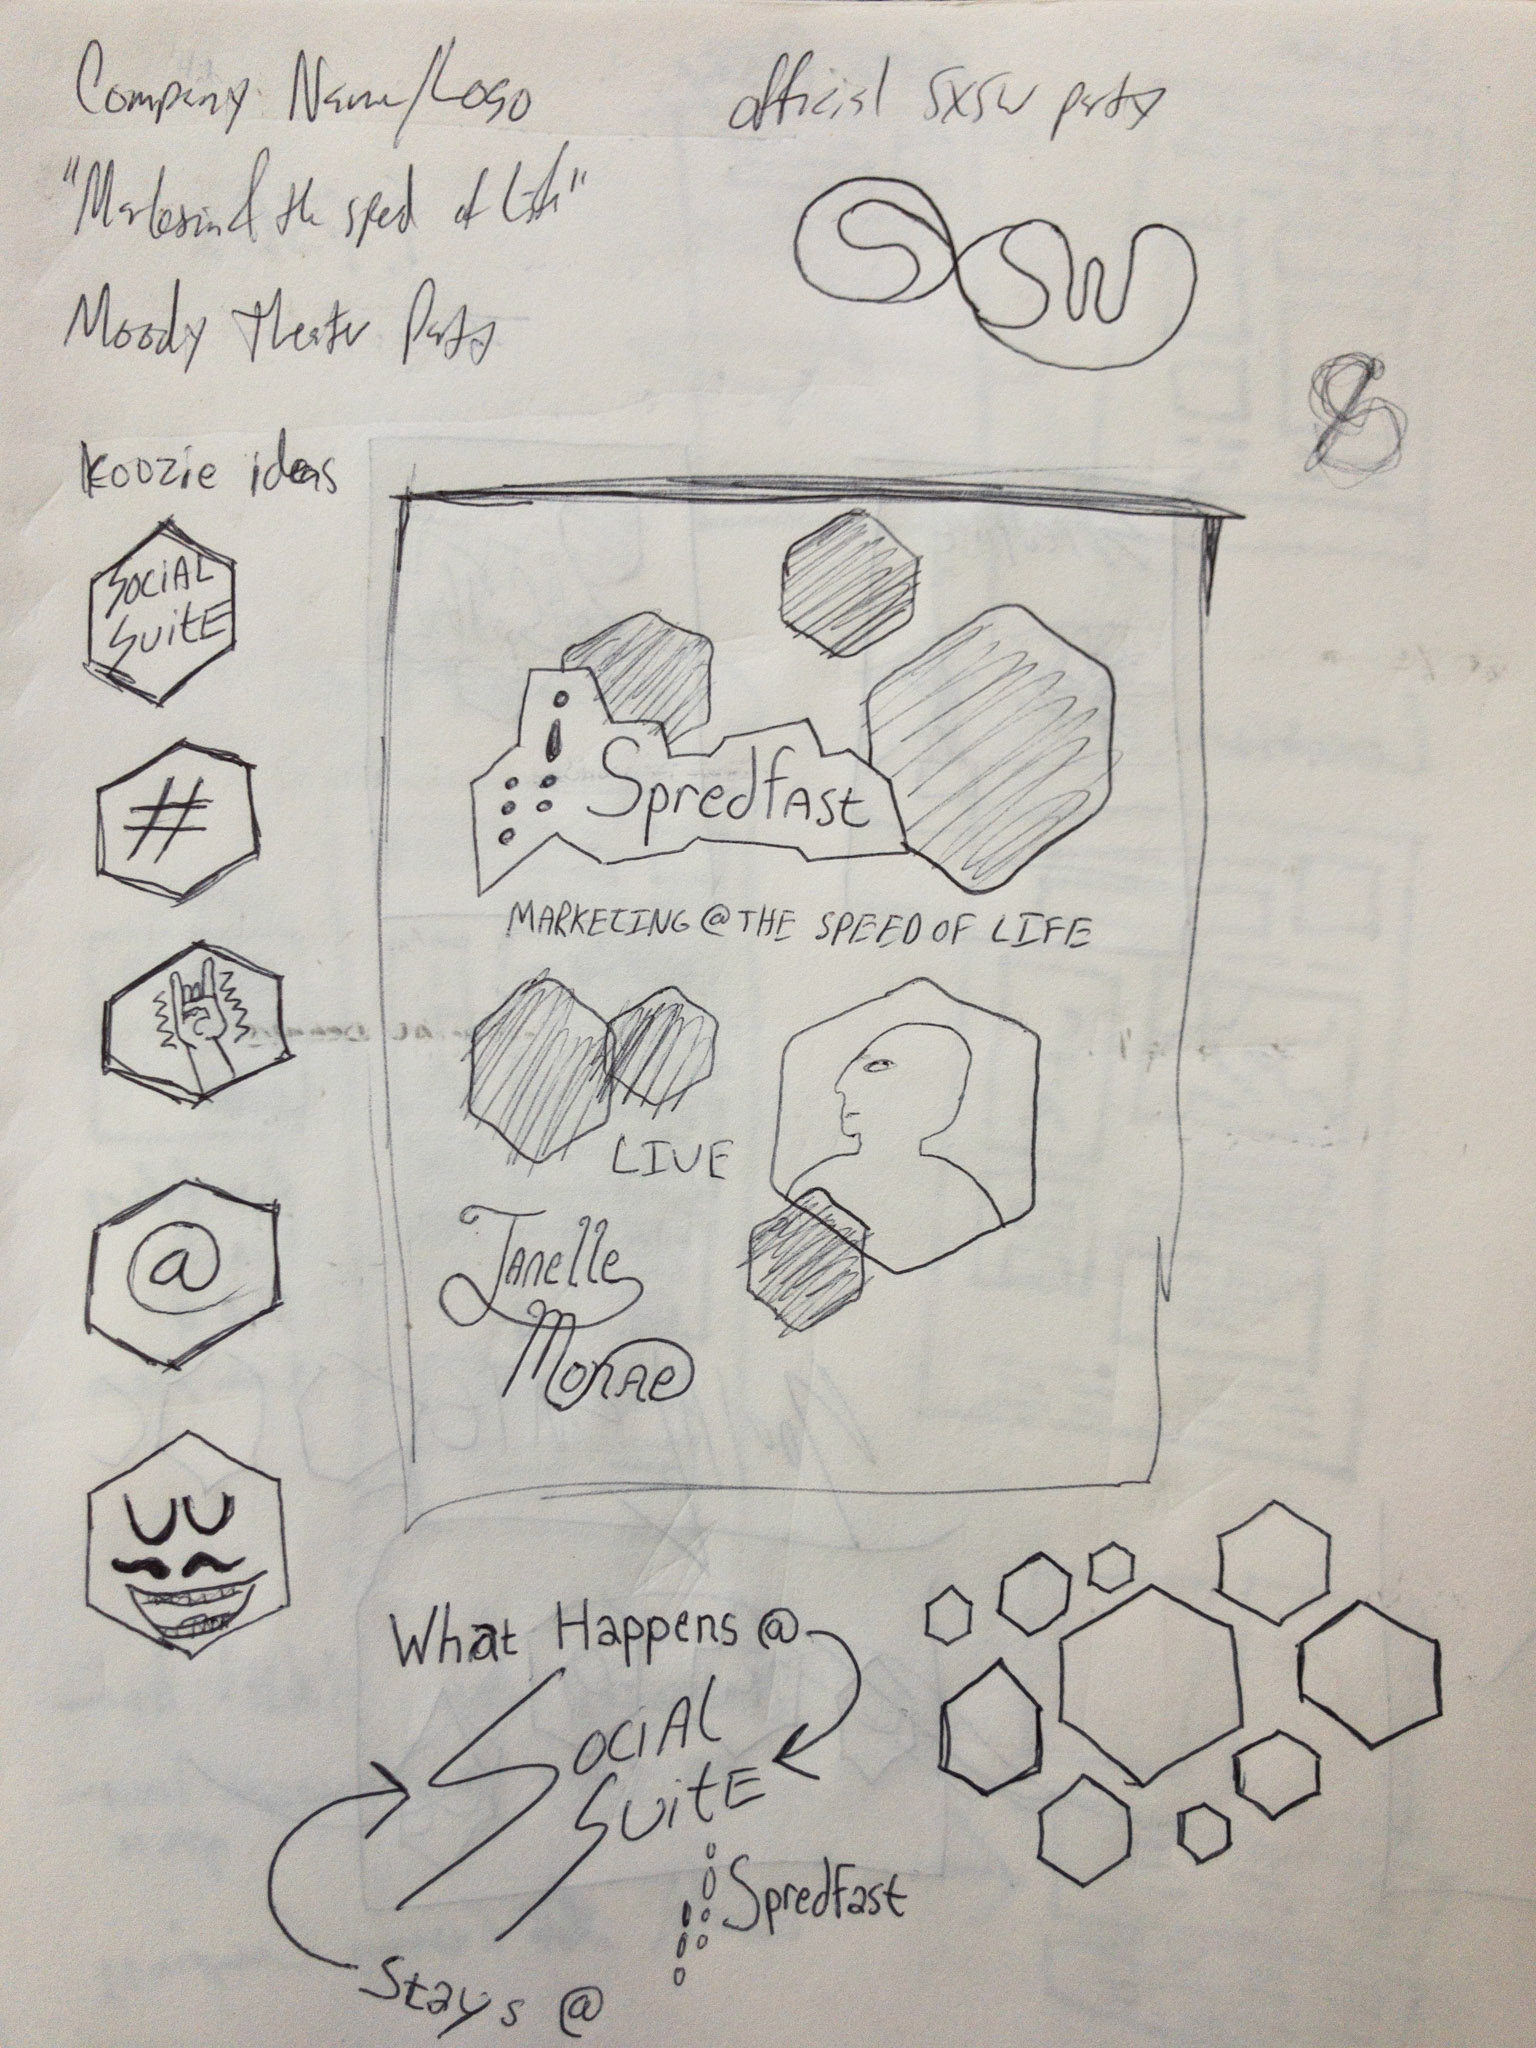 Company Name/Logo
official SXSW party
"Marketing @ the speed of Life"
SXSW
Moody Theater Party
Koozie ideas
SOCIAL
SUITE
#
@
Spredfast
MARKETING @ THE SPEED OF LIFE
LIVE
Janelle
Monae
What Happens @
SOCIAL
SUITE
Spredfast
Stays @